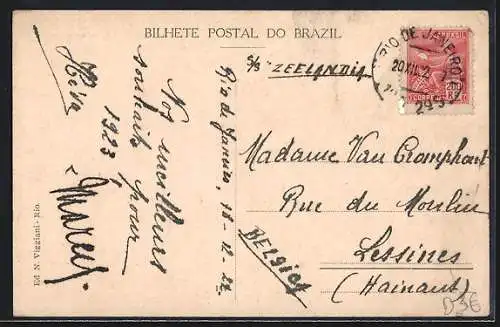 BILHETE POSTAL DO BRAZIL
S/S ZEELANDIA
RIO DE JANEIRO
20 XII 2
200
RS
CORREIO
Rio de Janeiro, 18-12-22
Nos meilleurs
souhaits pour
1923
Madame Van Cromphout
Rue du Moulin
Lessines
(Hainaut)
BELGICA
Ed N. Viggiani - Rio.
D36